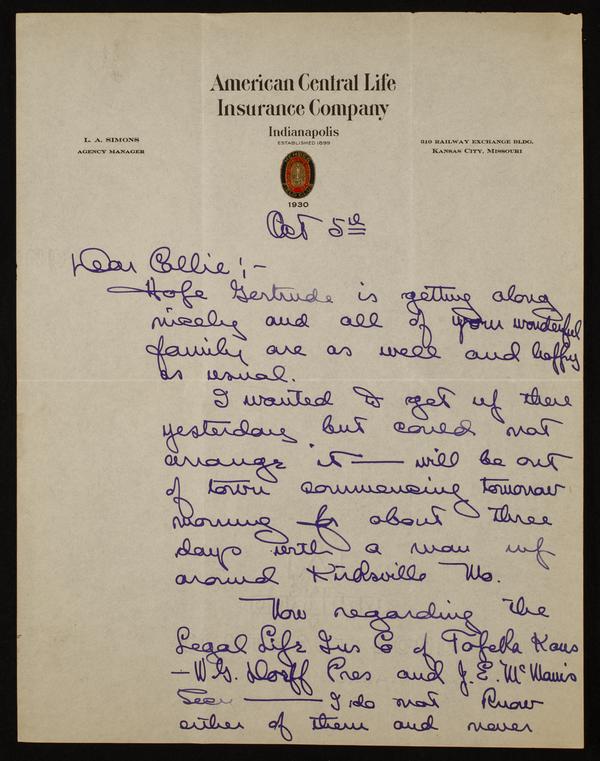 American Central Life
Insurance Company
Indianapolis
ESTABLISHED 1899
L. A. SIMONS
AGENCY MANAGER
310 RAILWAY EXCHANGE BLDG.
KANSAS CITY, MISSOURI
1930
Oct 5th
Dear Collie :-
Hope Gertrude is getting along
nicely and all of your wonderful
family are as well and happy
as usual.
I wanted to get up there
yesterday but could not
arrange it — will be out
of town commencing tomorrow
morning for about three
days with a man up
around Kirksville Mo.
Now regarding the
Legal Life Ins Co of Topeka Kans
- W.G. Dorff Pres and J.E. McManis
Secy — I do not know
either of them and never